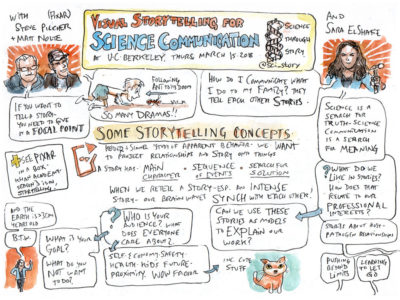 WITH (PIXAR)
STEVE PILCHER
+ MATT NOLTE
VISUAL STORYTELLING FOR
SCIENCE COMMUNICATION
AT UC BERKELEY, THURS MARCH 15 2018
SCIENCE
THROUGH
STORY
@Sci_story
AND
SARA ELSHAFIE
FOLLOWING
ANT TO ITS DOOM
SO MANY DRAMAS!!
HOW DO I COMMUNICATE WHAT
I DO TO MY FAMILY? THEY
TELL EACH OTHER STORIES.
IF YOU WANT TO
TELL A STORY,
YOU NEED TO GIVE
IT A FOCAL POINT
SCIENCE IS A
SEARCH FOR
TRUTH. SCIENCE
COMMUNICATION
IS A SEARCH
FOR MEANING
SOME STORYTELLING CONCEPTS
APPARENT BEHAVIOR - WE WANT
TO PROJECT RELATIONSHIPS AND STORY ONTO THINGS
A STORY HAS - MAIN CHARACTER + SEQUENCE OF EVENTS + SEARCH FOR SOLUTION
SEE PIXAR
IN A BOX -
KHAN ACADEMY
STORYTELLING
WHEN WE RETELL A STORY - ESP. AN INTENSE
STORY - OUR BRAIN WAVES SYNCH WITH EACH OTHER!
WHAT DID WE
LIKE IN MOVIES?
HOW DOES THAT
RELATE TO OUR
PROFESSIONAL
INTERESTS?
WHO IS YOUR
AUDIENCE? WHAT
DOES EVERYONE
CARE ABOUT?
CAN WE USE THESE
STORIES AS MODELS
TO EXPLAIN OUR
WORK?
AND THE
EARTH IS
YEARS OLD
B.T.W.
WHAT IS YOUR
GOAL?
WHAT DO YOU
NOT WANT
TO DO?
SELF + COMMUNITY. SAFETY.
HEALTH. KIDS. FUTURE.
PROXIMITY. WOW FACTOR
INC CUTE
STUFF
STORIES ABOUT
PATHOGEN RELATIONSHIPS
PUSHING
BEYOND
LIMITS
LEARNING
TO LET
GO